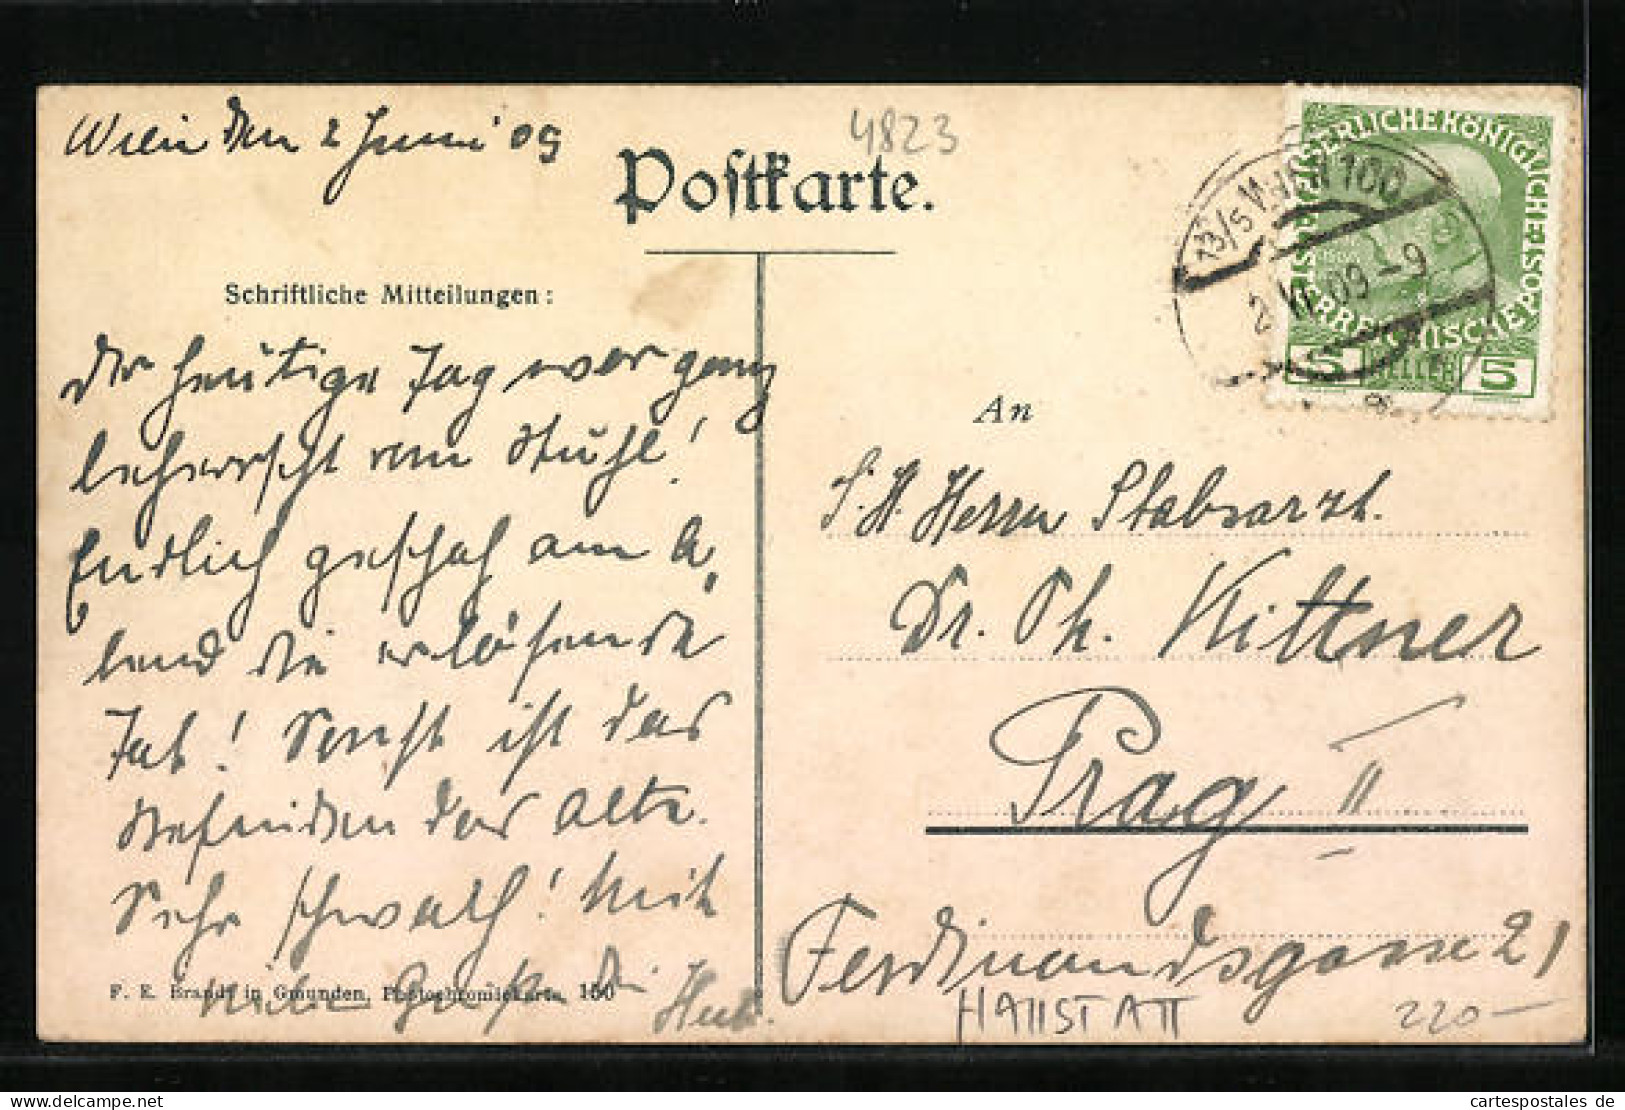 Wien den 2 Juni 09
4823
Postkarte.
Schriftliche Mitteilungen:
Der heutige Tag war ganz
beherrscht vom Stuhl!
Endlich geschah am A,
bend die erlösende
Tat! Sonst ist das
Befinden das alte.
Sehr schwach! Mit
Gruß Dein
Hub.
F. E. Brandt in Gmunden, Photochromiekarte, 150
13/5 WIEN 100
2 VI 09 - 9
KAISERLICHE KÖNIGLICHE
ÖSTERREICHISCHE POST
5 HELLER 5
An
S. H. Herrn Stabsarzt.
Dr. Th. Kittner
Prag II
Ferdinandsgasse 21
HALLSTATT
220 -
cartespostales de